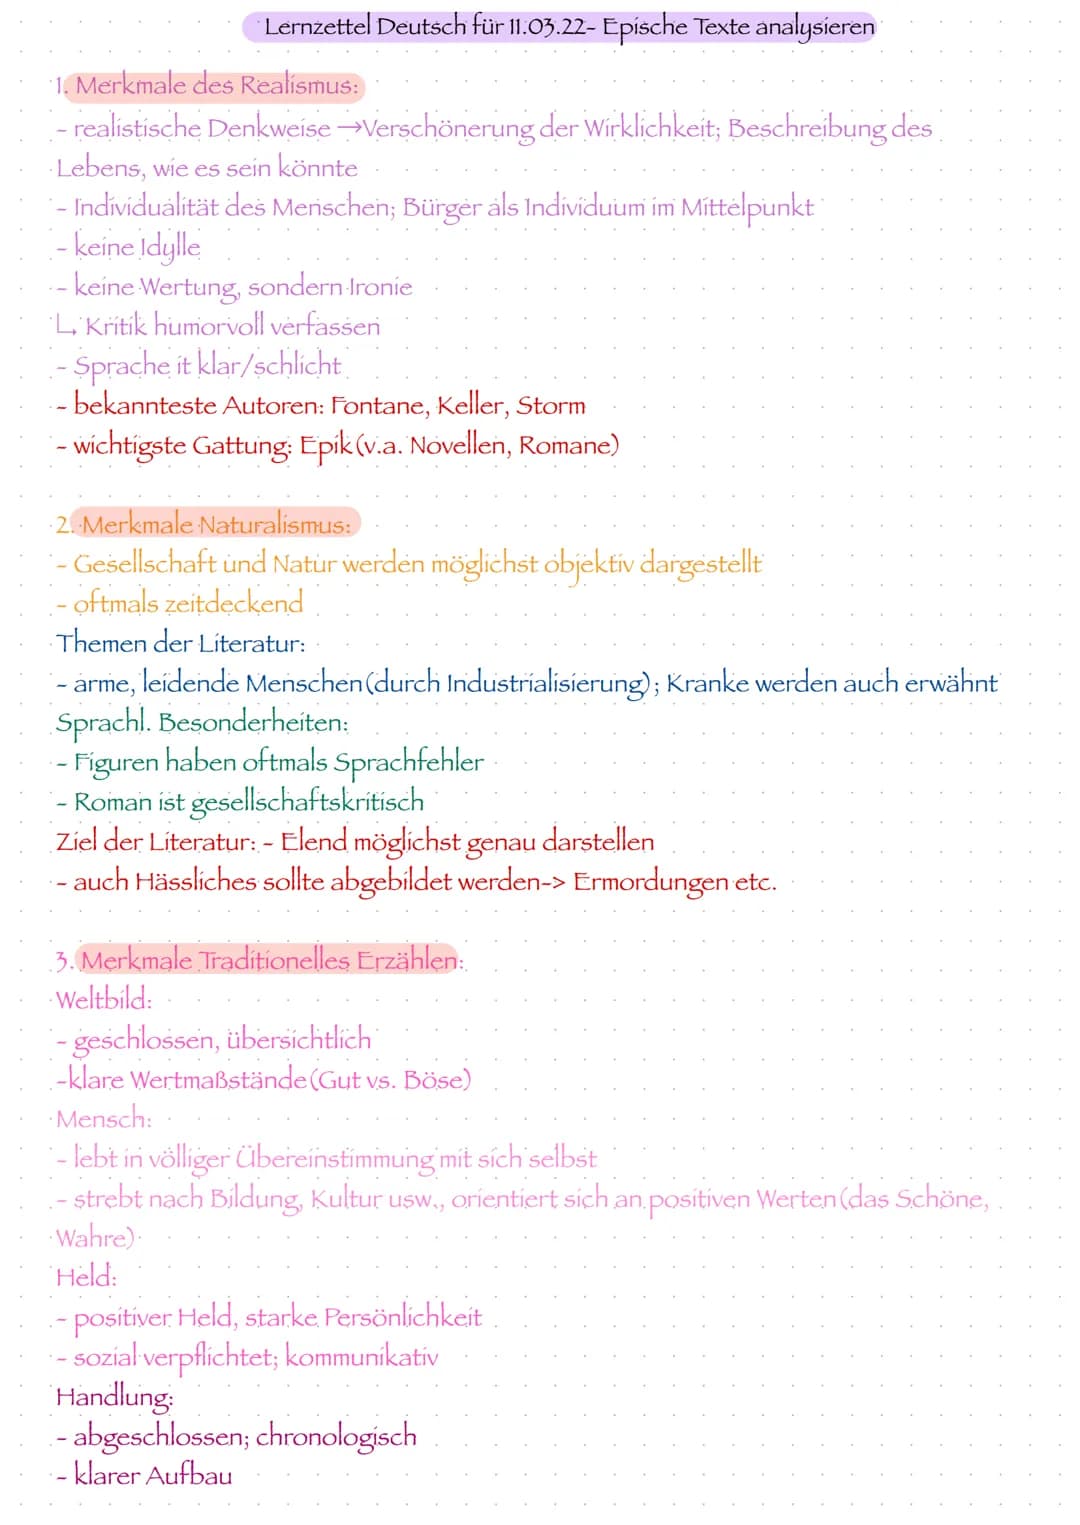 Lernzettel Deutsch für 11.03.22- Epische Texte analysieren
1. Merkmale des Realismus:
- realistische Denkweise →Verschönerung der Wirklichkeit; Beschreibung des
Lebens, wie es sein könnte
- Individualität des Menschen; Bürger als Individuum im Mittelpunkt
- keine Idylle
- keine Wertung, sondern Ironie
↳ Kritik humorvoll verfassen
- Sprache it klar/schlicht
- bekannteste Autoren: Fontane, Keller, Storm
- wichtigste Gattung: Epik (v.a. Novellen, Romane)
2. Merkmale Naturalismus:
- Gesellschaft und Natur werden möglichst objektiv dargestellt
- oftmals zeitdeckend
Themen der Literatur:
- arme, leidende Menschen (durch Industrialisierung); Kranke werden auch erwähnt
Sprachl. Besonderheiten:
- Figuren haben oftmals Sprachfehler
- Roman ist gesellschaftskritisch
Ziel der Literatur: - Elend möglichst genau darstellen
- auch Hässliches sollte abgebildet werden-> Ermordungen etc.
3. Merkmale Traditionelles Erzählen:
Weltbild:
- geschlossen, übersichtlich
-klare Wertmaßstände (Gut vs. Böse)
Mensch:
- lebt in völliger Übereinstimmung mit sich selbst
- strebt nach Bildung, Kultur usw., orientiert sich an positiven Werten (das Schöne,
Wahre)
Held:
- positiver Held, starke Persönlichkeit
- sozial verpflichtet; kommunikativ
Handlung:
- abgeschlossen; chronologisch
- klarer Aufbau